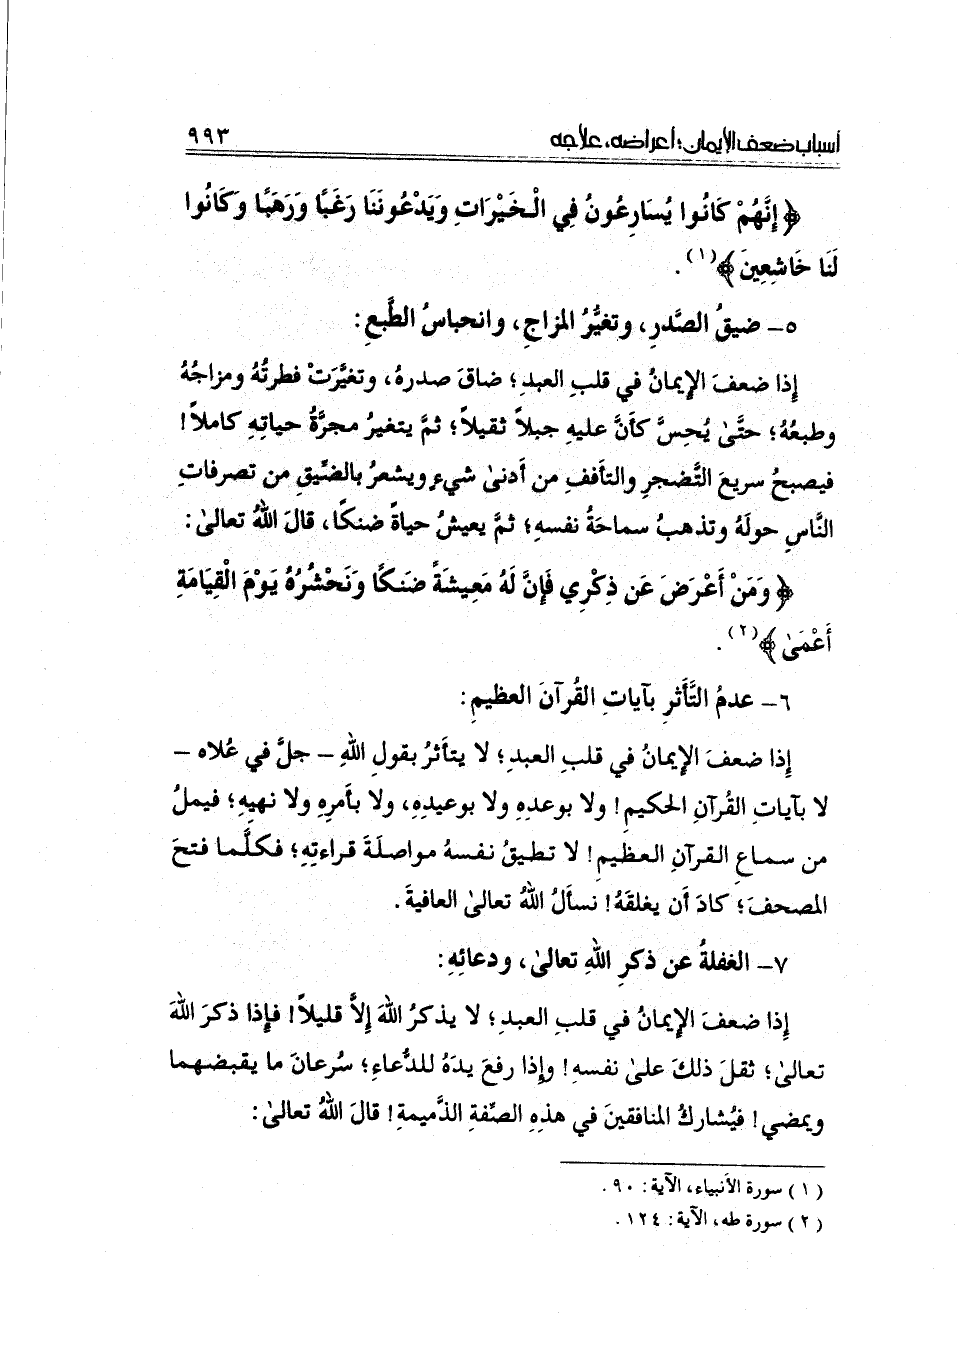 أسباب ضعف الإيمان؛ أعراضه، علاجه ٩٩٣
﴿إِنَّهُمْ كَانُوا يُسَارِعُونَ فِي الْخَيْرَاتِ وَيَدْعُونَنَا رَغَبًا وَرَهَبًا وَكَانُوا
لَنَا خَاشِعِينَ﴾(١).
٥- ضيقُ الصَّدرِ، وتغيُّرُ المزاجِ، وانحباسُ الطَّبعِ:
إذا ضعفَ الإيمانُ في قلبِ العبدِ؛ ضاقَ صدرهُ، وتغيَّرَتْ فطرتُهُ ومزاجُهُ
وطبعُهُ؛ حتَّىٰ يُحِسَّ كأنَّ عليهِ جبلاً ثقيلاً؛ ثمَّ يتغيرُ مجرَّةُ حياتِهِ كاملاً!
فيصبحُ سريعَ التَّضجرِ والتأففِ من أدنىٰ شيءٍ ويشعرُ بالضِّيقِ من تصرفاتِ
النَّاسِ حولَهُ وتذهبُ سماحَةُ نفسهِ؛ ثمَّ يعيشُ حياةً ضنكًا، قالَ اللهُ تعالىٰ:
﴿وَمَنْ أَعْرَضَ عَن ذِكْرِي فَإِنَّ لَهُ مَعِيشَةً ضَنكًا وَنَحْشُرُهُ يَوْمَ الْقِيَامَةِ
أَعْمَىٰ﴾(٢).
٦- عدمُ التَّأَثرِ بآياتِ القُرآنَ العظيمِ:
إذا ضعفَ الإيمانُ في قلبِ العبدِ؛ لا يتأثرُ بقولِ اللهِ – جلَّ في عُلاه –
لا بآياتِ القُرآنِ الحكيمِ! ولا بوعدهِ ولا بوعيدِهِ، ولا بأمرِهِ ولا نهيهِ؛ فيملُ
من سماعِ القرآنِ العظيمِ! لا تطيقُ نفسهُ مواصلَةَ قراءتِهِ؛ فكلَّما فتحَ
المصحفَ؛ كادَ أن يغلقَهُ! نسألُ اللهُ تعالىٰ العافيةَ.
٧- الغفلةُ عن ذكرِ اللهِ تعالىٰ، ودعائِهِ:
إذا ضعفَ الإيمانُ في قلبِ العبدِ؛ لا يذكرُ اللهَ إلاَّ قليلاً! فإذا ذكرَ اللهَ
تعالىٰ؛ ثقلَ ذلكَ علىٰ نفسهِ! وإذا رفعَ يدَهُ للدُّعاءِ؛ سُرعانَ ما يقبضهما
ويمضي! فيُشاركُ المنافقينَ في هذِهِ الصفةِ الذَّميمةِ! قالَ اللهُ تعالىٰ:
(١) سورة الأنبياء، الآية: ٩٠.
(٢) سورة طه، الآية: ١٢٤.